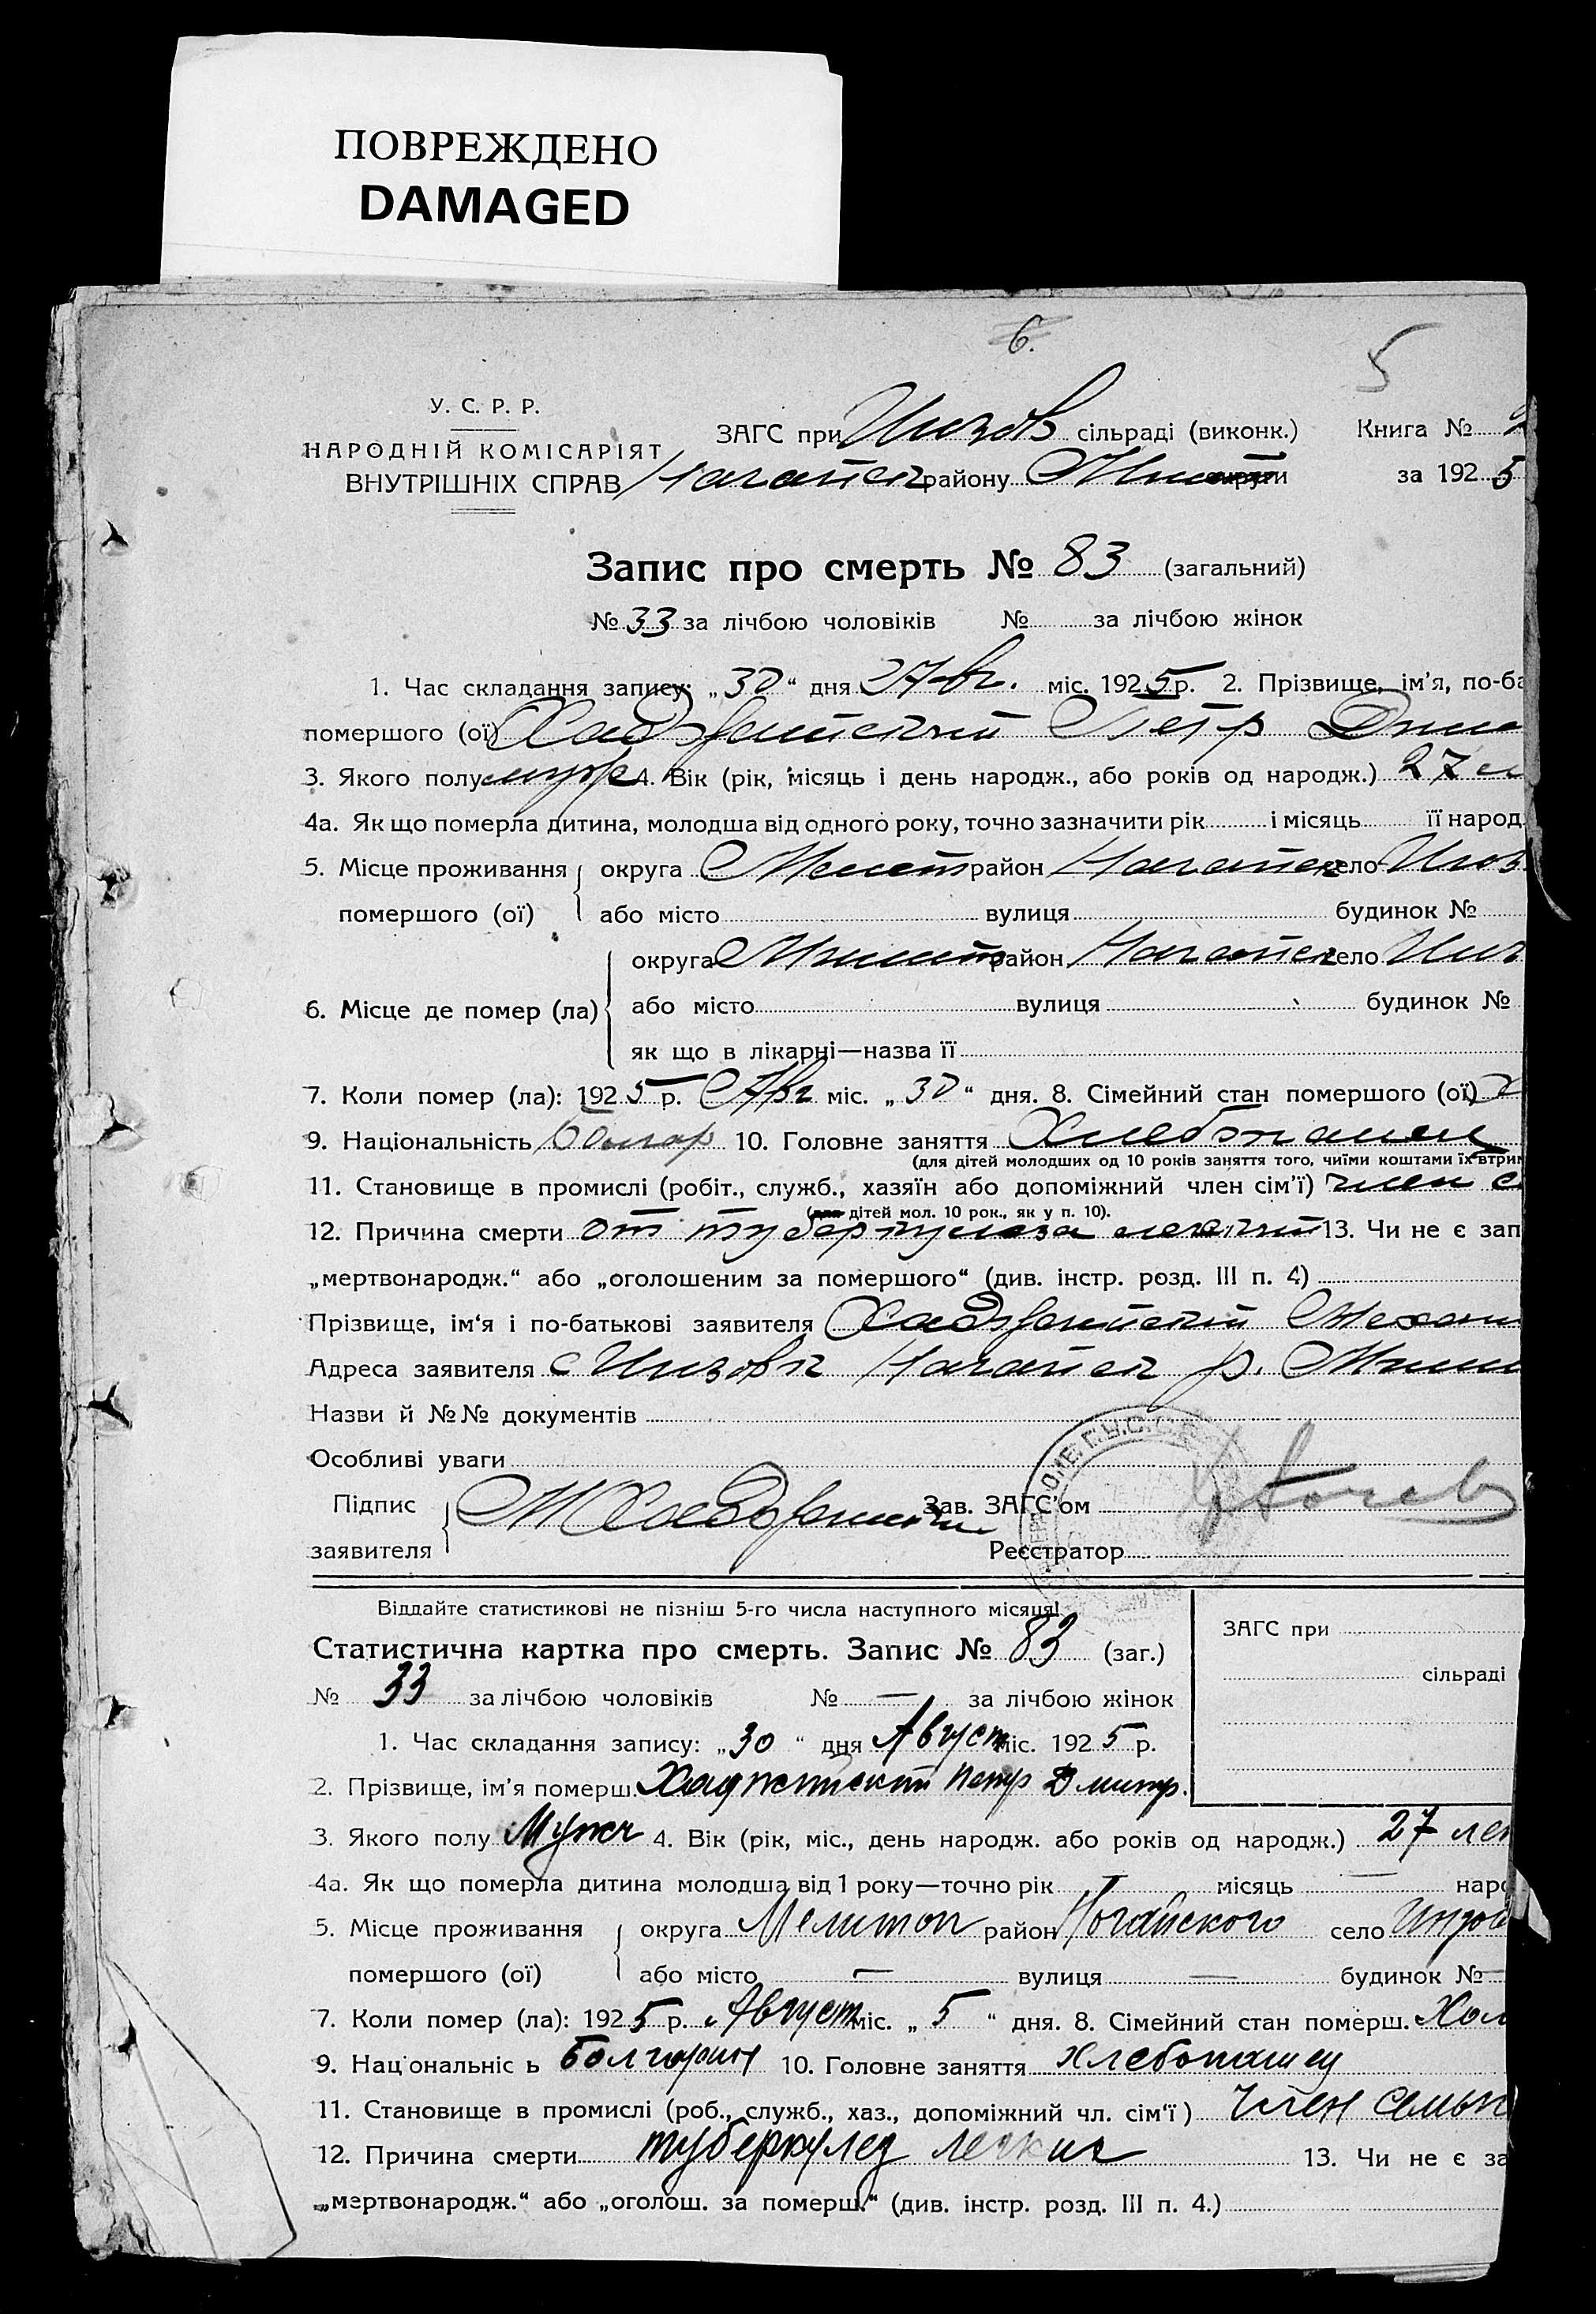 ПОВРЕЖДЕНО
DAMAGED
6.
5
У. С. Р. Р.
НАРОДНІЙ КОМІСАРІЯТ
ВНУТРІШНІХ СПРАВ
ЗАГС при сільраді (виконк.) Книга №
району округи за 1925
Запис про смерть № 83 (загальний)
№ 33 за лічбою чоловіків № за лічбою жінок
1. Час складання запису: „30“ дня міс. 1925 р. 2. Прізвище, ім'я, по-ба
помершого (ої) Петр
3. Якого полу 4. Вік (рік, місяць і день народж., або років од народж.) 27 л
4а. Як що померла дитина, молодша від одного року, точно зазначити рік і місяць її народ
5. Місце проживання округа район село
помершого (ої) або місто вулиця будинок №
округа район село
6. Місце де помер (ла) або місто вулиця будинок №
як що в лікарні—назва її
7. Коли помер (ла): 1925 р. Авг міс. „30“ дня. 8. Сімейний стан помершого (ої) Х
9. Національність болгар 10. Головне заняття Хлебопашец
(для дітей молодших од 10 років заняття того, чиїми коштами їх втрим
11. Становище в промислі (робіт., служб., хазяїн або допоміжний член сім'ї) член с
(для дітей мол. 10 рок., як у п. 10).
12. Причина смерти от туберкулеза легких 13. Чи не є зап
„мертвонародж.“ або „оголошеним за помершого“ (див. інстр. розд. III п. 4)
Прізвище, ім'я і по-батькові заявителя
Адреса заявителя с р.
Назви й №№ документів
Особливі уваги
Підпис
заявителя
Зав. ЗАГС'ом
Реєстратор
Віддайте статистикові не пізніш 5-го числа наступного місяця!
Статистична картка про смерть. Запис № 83 (заг.)
ЗАГС при
сільраді
№ 33 за лічбою чоловіків № — за лічбою жінок
1. Час складання запису: „30“ дня Август міс. 1925 р.
2. Прізвище, ім'я померш. Петр Дмитр.
3. Якого полу Мужч 4. Вік (рік, міс., день народж. або років од народж.) 27 лет
4а. Як що померла дитина молодша від 1 року—точно рік — місяць — наро
5. Місце проживання округа Мелитоп район Ногайского село
помершого (ої) або місто — вулиця — будинок № —
7. Коли помер (ла): 1925 р. Август міс. „5“ дня. 8. Сімейний стан померш. Хол
9. Нац ональніс ь болгарин 10. Головне заняття хлебопашец
11. Становище в промислі (роб., служб., хаз., допоміжний чл. сім'ї) член семьи
12. Причина смерти туберкулез легких 13. Чи не є за
„мертвонародж.“ або „оголош. за померш.“ (див. інстр. розд. III п. 4.)